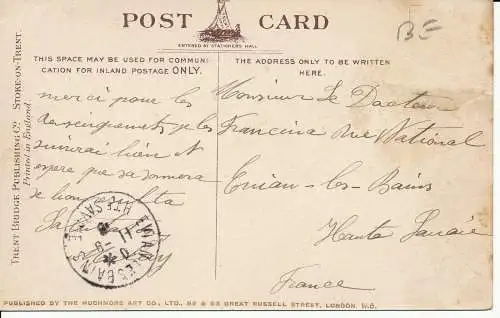 POST CARD
ENTERED AT STATIONERS HALL
BE
THIS SPACE MAY BE USED FOR COMMUNI-
CATION FOR INLAND POSTAGE ONLY.
THE ADDRESS ONLY TO BE WRITTEN
HERE.
TRENT BRIDGE PUBLISHING CO. STOKE-ON-TRENT.
Printed in England.
merci pour les
renseignements je les
suivrai bien et
espère que sa donnera
de bons
EVIAN-LES-BAINS
HTE SAVOIE
11 -9
Monsieur Le Docteur
Francina rue National
Evian-les-Bains
Haute Savoie
France
PUBLISHED BY THE HUCHMORE ART CO., LTD., 82 & 83 GREAT RUSSELL STREET, LONDON, W.C.